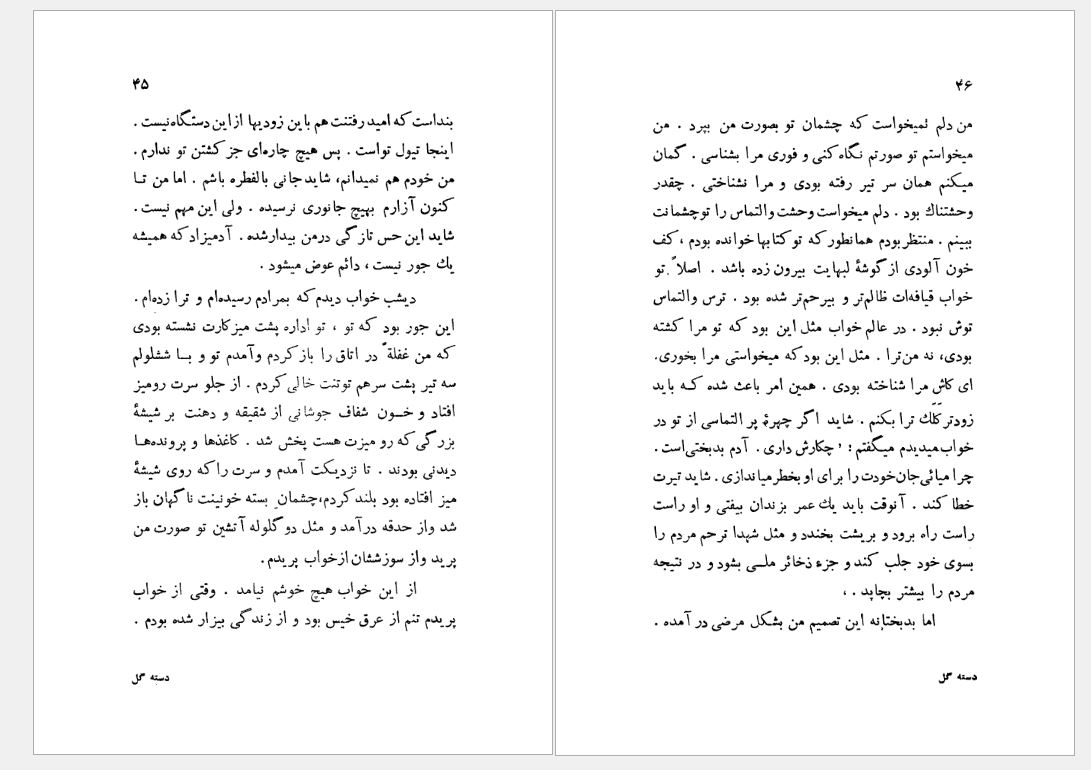 ۴۵
بنداست که امید رفتنت هم باین زودیها از این دستگاه نیست .
اینجا تیول تواست . پس هیچ چاره‌ای جز کشتن تو ندارم .
من خودم هم نمیدانم، شاید جانی بالفطره باشم . اما من تـا
کنون آزارم بهیچ جانوری نرسیده . ولی این مهم نیست .
شاید این حس تازگی درمن بیدارشده . آدمیزاد که همیشه
یك جور نیست ، دائم عوض میشود .
دیشب خواب دیدم که بمرادم رسیده‌ام و ترا زده‌ام .
این جور بود که تو ، تو اداره پشت میز کارت نشسته بودی
که من غفلةً در اتاق را باز کردم وآمدم تو و بــا ششلولم
سه تیر پشت سرهم توتنت خالی کردم . از جلو سرت رومیز
افتاد و خــون شفاف جوشانی از شقیقه و دهنت بر شیشهٔ
بزرگی که رو میزت هست پخش شد . کاغذها و پرونده‌هـا
دیدنی بودند . تا نزدیکت آمدم و سرت را که روی شیشهٔ
میز افتاده بود بلند کردم،چشمان بسته خونینت ناگهان باز
شد واز حدقه درآمد و مثل دو گلوله آتشین تو صورت من
پرید واز سوزششان ازخواب پریدم .
از این خواب هیچ خوشم نیامد . وقتی از خواب
پریدم تنم از عرق خیس بود و از زندگی بیزار شده بودم .
دسته گل
۴۶
من دلم نمیخواست که چشمان تو بصورت من بپرد . من
میخواستم تو صورتم نگاه کنی و فوری مرا بشناسی . گمان
میکنم همان سر تیر رفته بودی و مرا نشناختی . چقدر
وحشتناك بود . دلم میخواست وحشت والتماس را توچشمانت
ببینم . منتظر بودم همانطور که تو کتابها خوانده بودم ، کف
خون آلودی از گوشهٔ لبهایت بیرون زده باشد . اصلاً تو
خواب قیافه‌ات ظالم‌تر و بیرحم‌تر شده بود . ترس والتماس
توش نبود . در عالم خواب مثل این بود که تو مرا کشته
بودی، نه من‌ترا . مثل این بود که میخواستی مرا بخوری.
ای کاش مرا شناخته بودی . همین امر باعث شده کــه باید
زودتر کَلَك ترا بکنم . شاید اگر چهرهٔ پر التماسی از تو در
خواب میدیدم میگفتم : ' چکارش داری . آدم بدبختی‌است .
چرا میائی‌جان‌خودت را برای او بخطر میاندازی . شاید تیرت
خطا کند . آنوقت باید یك عمر بزندان بیفتی و او راست
راست راه برود و بریشت بخندد و مثل شهدا ترحم مردم را
بسوی خود جلب کند و جزء ذخائر ملــی بشود و در نتیجه
مردم را بیشتر بچاپد . ،
اما بدبختانه این تصمیم من بشکل مرضی در آمده .
دسته گل